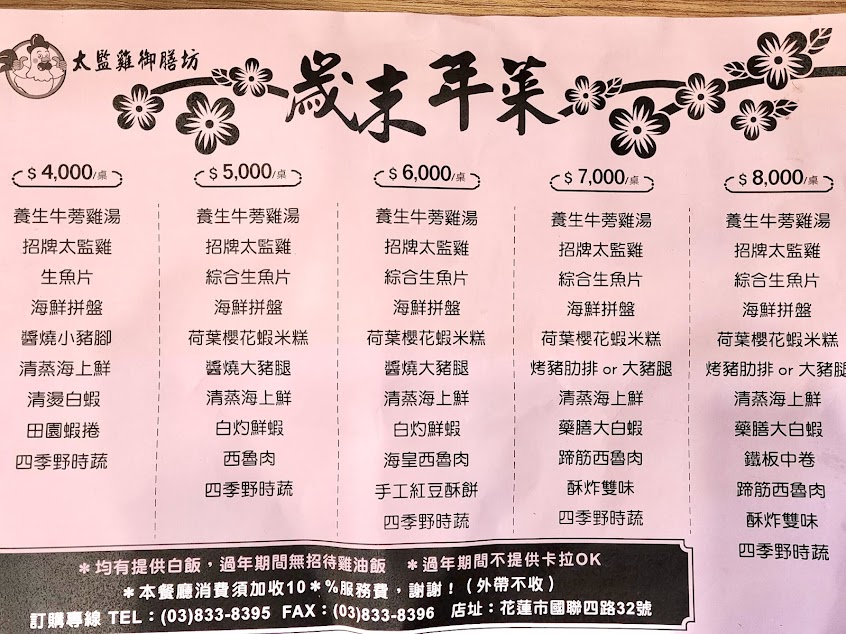 太監雞御膳坊
歲末年菜
$ 4,000/桌
養生牛蒡雞湯
招牌太監雞
生魚片
海鮮拼盤
醬燒小豬腳
清蒸海上鮮
清燙白蝦
田園蝦捲
四季野時蔬
$ 5,000/桌
養生牛蒡雞湯
招牌太監雞
綜合生魚片
海鮮拼盤
荷葉櫻花蝦米糕
醬燒大豬腿
清蒸海上鮮
白灼鮮蝦
西魯肉
四季野時蔬
$ 6,000/桌
養生牛蒡雞湯
招牌太監雞
綜合生魚片
海鮮拼盤
荷葉櫻花蝦米糕
醬燒大豬腿
清蒸海上鮮
白灼鮮蝦
海皇西魯肉
手工紅豆酥餅
四季野時蔬
$ 7,000/桌
養生牛蒡雞湯
招牌太監雞
綜合生魚片
海鮮拼盤
荷葉櫻花蝦米糕
烤豬肋排 or 大豬腿
清蒸海上鮮
藥膳大白蝦
蹄筋西魯肉
酥炸雙味
四季野時蔬
$ 8,000/桌
養生牛蒡雞湯
招牌太監雞
綜合生魚片
海鮮拼盤
荷葉櫻花蝦米糕
烤豬肋排 or 大豬腿
清蒸海上鮮
藥膳大白蝦
鐵板中卷
蹄筋西魯肉
酥炸雙味
四季野時蔬
＊均有提供白飯，過年期間無招待雞油飯 ＊過年期間不提供卡拉OK
＊本餐廳消費須加收10＊%服務費，謝謝！（外帶不收）
訂購專線 TEL：(03)833-8395 FAX：(03)833-8396 店址：花蓮市國聯四路32號